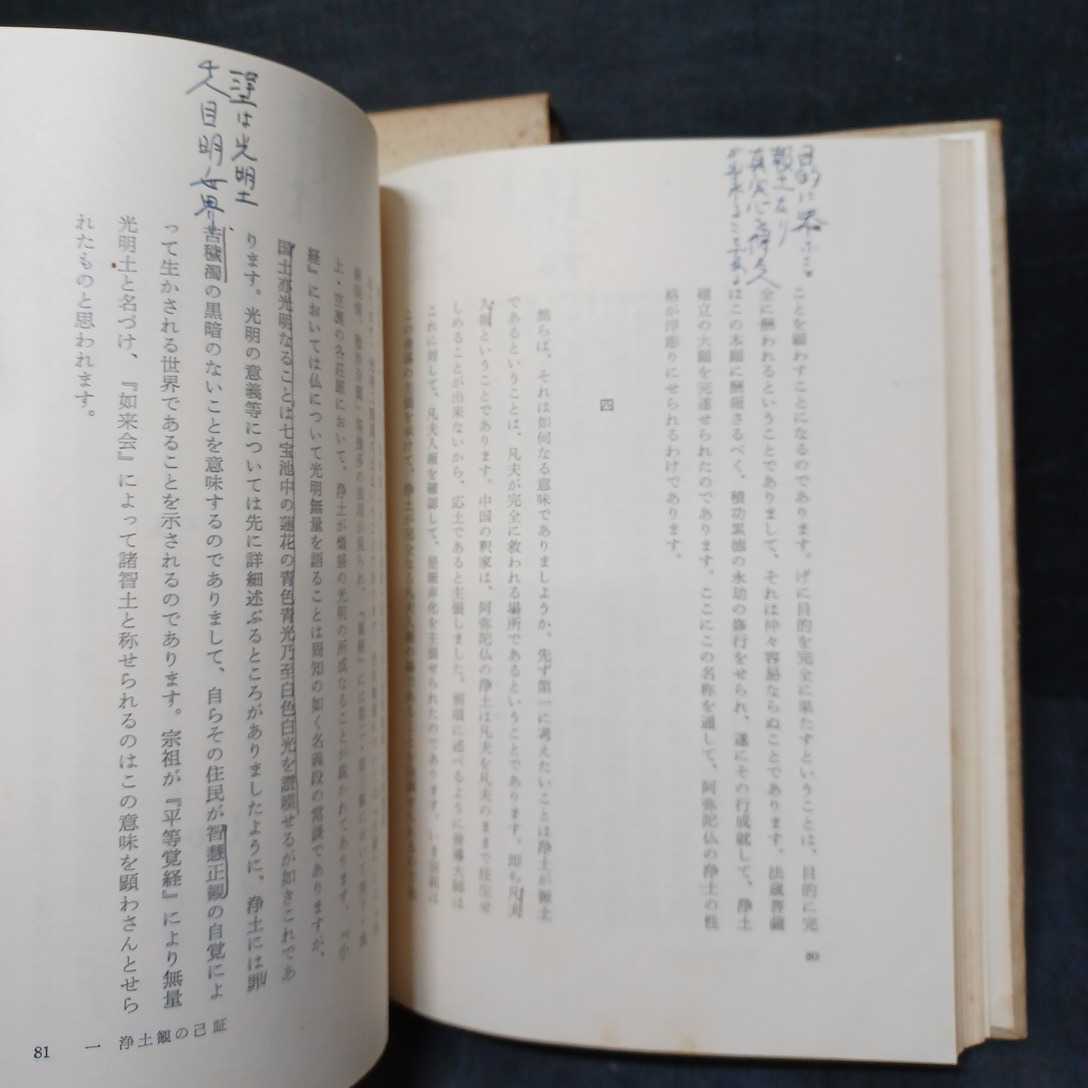 ことを顕わすことになるのであります。げに目的を完全に果たすということは、目的に完
全に酬われるということでありまして、それは仲々容易ならぬことであります。法蔵菩薩
はこの本願に酬報さるべく、積功累徳の永劫の修行をせられ、遂にその行成就して、浄土
建立の大願を完遂せられたのであります。ここにこの名称を通して、阿弥陀仏の浄土の性
格が浮彫りにせられるわけであります。
四
然らば、それは如何なる意味でありましようか。先ず第一に考えたいことは浄土が報土
であるということは、凡夫が完全に救われる場所であるということであります。即ち凡夫
入報ということであります。中国の釈家は、阿弥陀仏の浄土は凡夫を凡夫のままで往生せ
しめることが出来ないから、応土であると主張しました。前項に述べるように善導大師は
これに対して、凡夫入報を確認して、是報非化を主張せられたのであります。いま宗祖は
80
望は光明土
目明
世界
経』においては仏について光明無量を語ることは周知の如く名義段の常談でありますが、
国土亦光明なることは七宝池中の蓮花の青色青光乃至白色白光を讃嘆せるが如きこれであ
ります。光明の意義等については先に詳細述ぶるところがありましたように、浄土には罪
苦穢濁の黒暗のないことを意味するのでありまして、自らその住民が智慧正観の自覚によ
って生かされる世界であることを示されるのであります。宗祖が『平等覚経』により無量
光明土と名づけ、『如来会』によって諸智土と称せられるのはこの意味を顕わさんとせら
れたものと思われます。
81 一 浄土観の己証